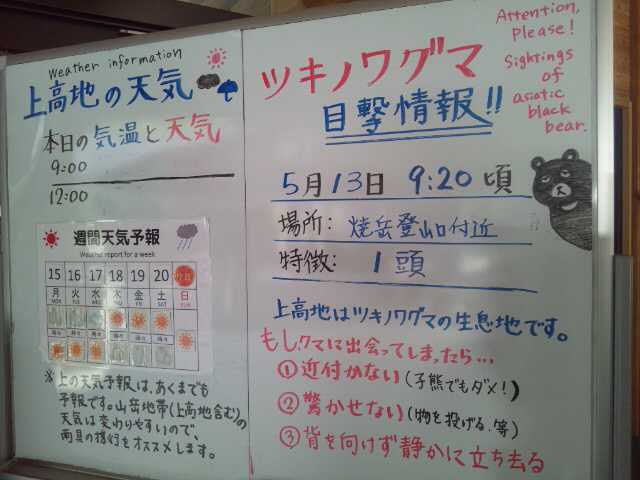 Weather information
上高地の天気
本日の気温と天気
9:00
12:00
週間天気予報
Weather report for a week
15 16 17 18 19 20
月 火 水 木 金 土 日
※上の天気予報は、あくまでも
予報です。山岳地帯(上高地含む)の
天気は変わりやすいので、
雨具の携行をオススメします。
ツキノワグマ
目撃情報!!
Attention,
please!
Sightings
of
asiatic
black
bear.
5月13日 9:20頃
場所: 焼岳登山口付近
特徴: 1頭
上高地はツキノワグマの生息地です。
もしクマに出会ってしまったら...
①近付かない(子熊でもダメ!)
②驚かせない(物を投げる.等)
③背を向けず静かに立ち去る